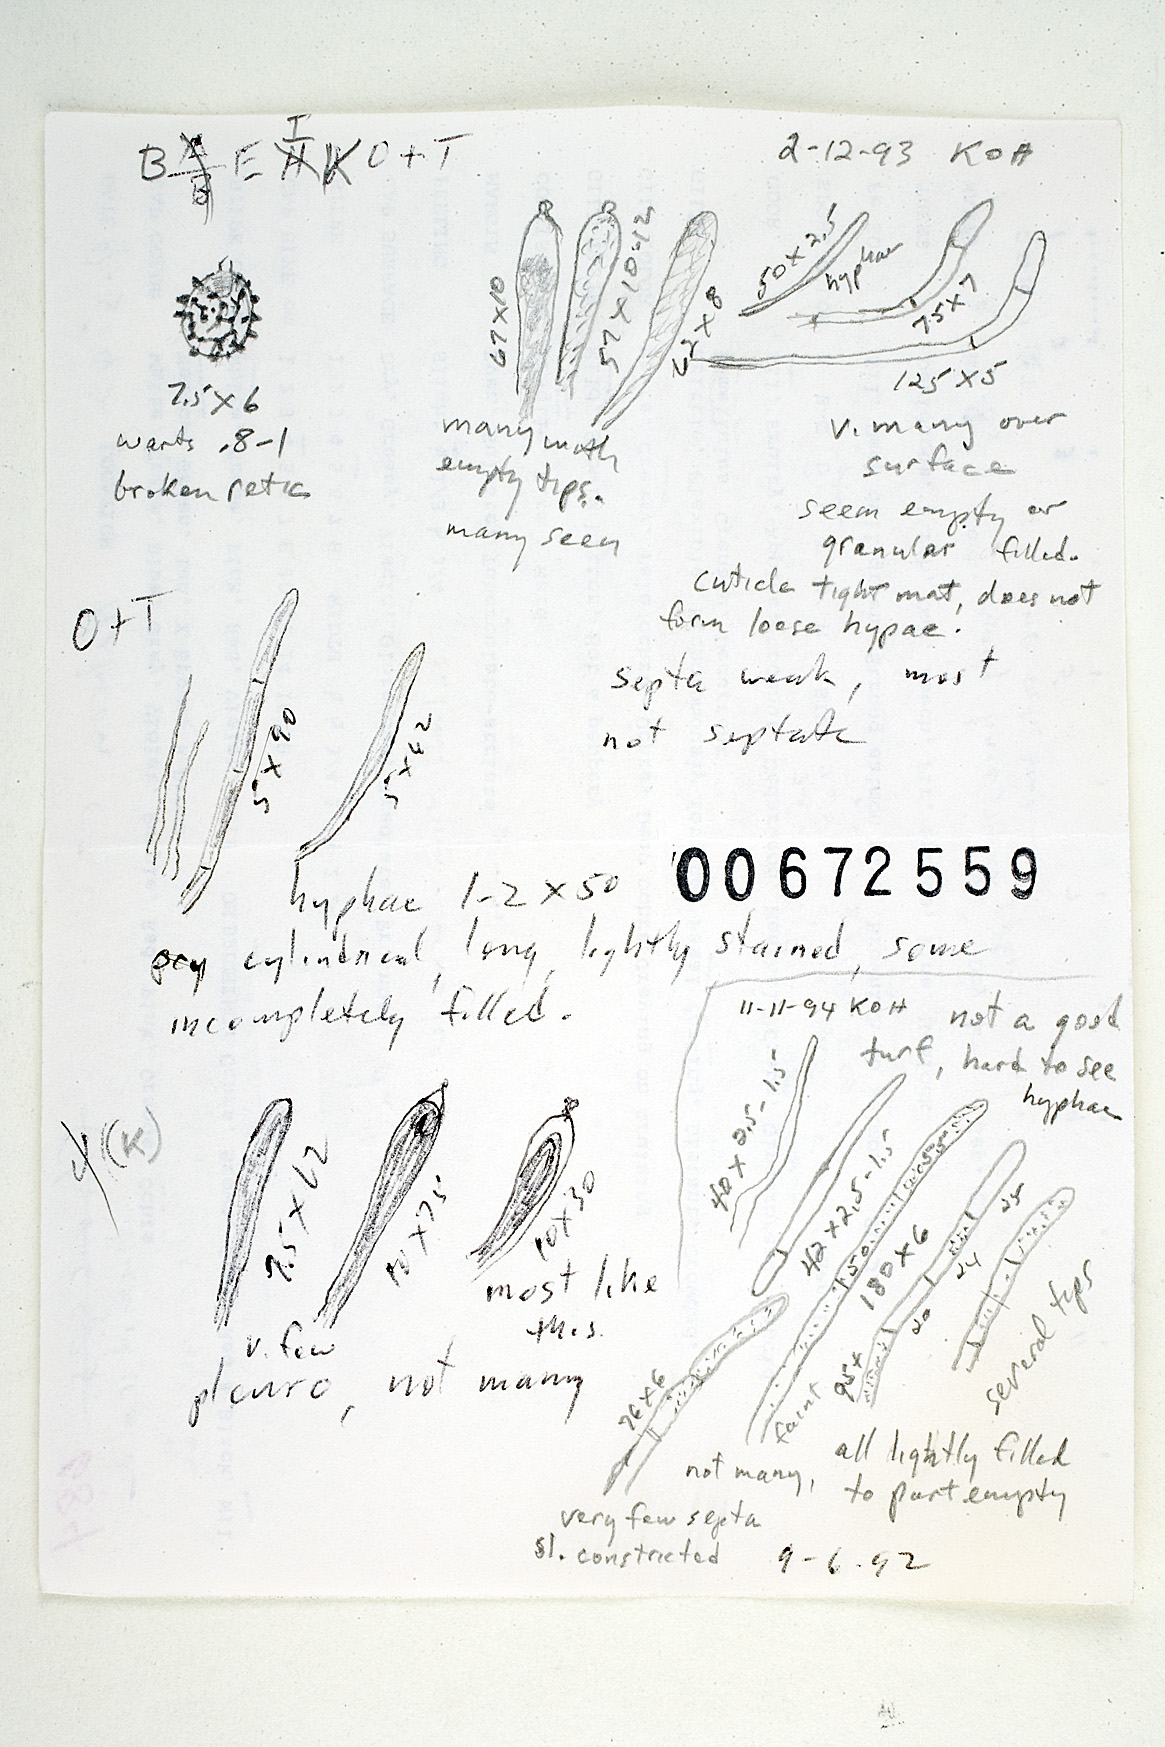 B E I O+T
2-12-93 KOH
7.5 X 6
warts .8-1
broken retic
67 X 10
57 X 10
X 8
many with
empty tips.
many seen
50 X 2.5
hyphae
75 X 7
125 X 5
v. many over
surface
seem empty or
granular filled.
cuticle tight mat, does not
form loose hypae.
septa weak, most
not septate
O+T
5 X 90
5 X 42
00672559
hyphae 1-2 X 50
cylindrical, long, lightly stained, some
incompletely filled.
11-11-94 KOH not a good
turf, hard to see
hyphae
40 X 2.5-1.5
42 X 2.5-1.5
50
180 X 6
25
24
20
95 X
faint
several tips
76 X 6
ψ (K)
7.5 X 62
10 X 75
10 X 30
v. few
most like
this.
pleuro, not many
not many,
all lightly filled
to part empty
very few septa
sl. constricted
9-6-92